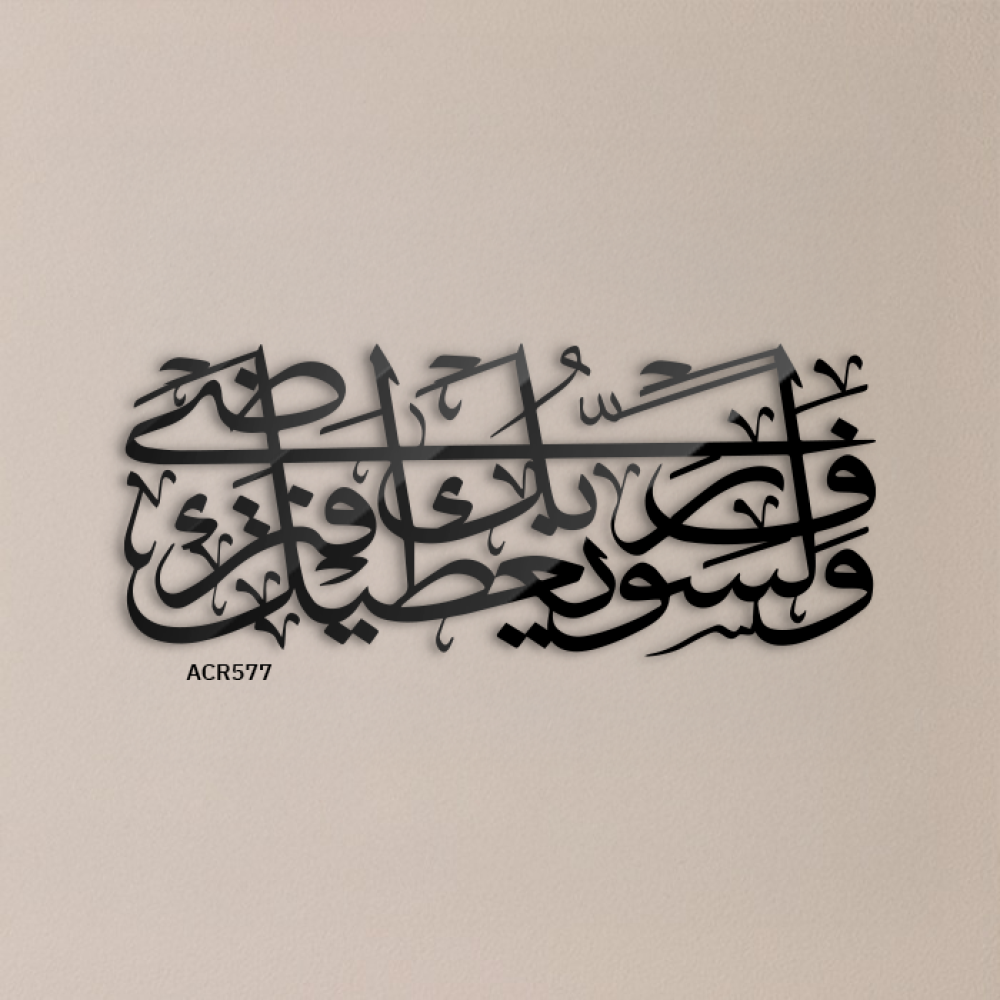 ولسوف يعطيك ربك فترضى
ACR577